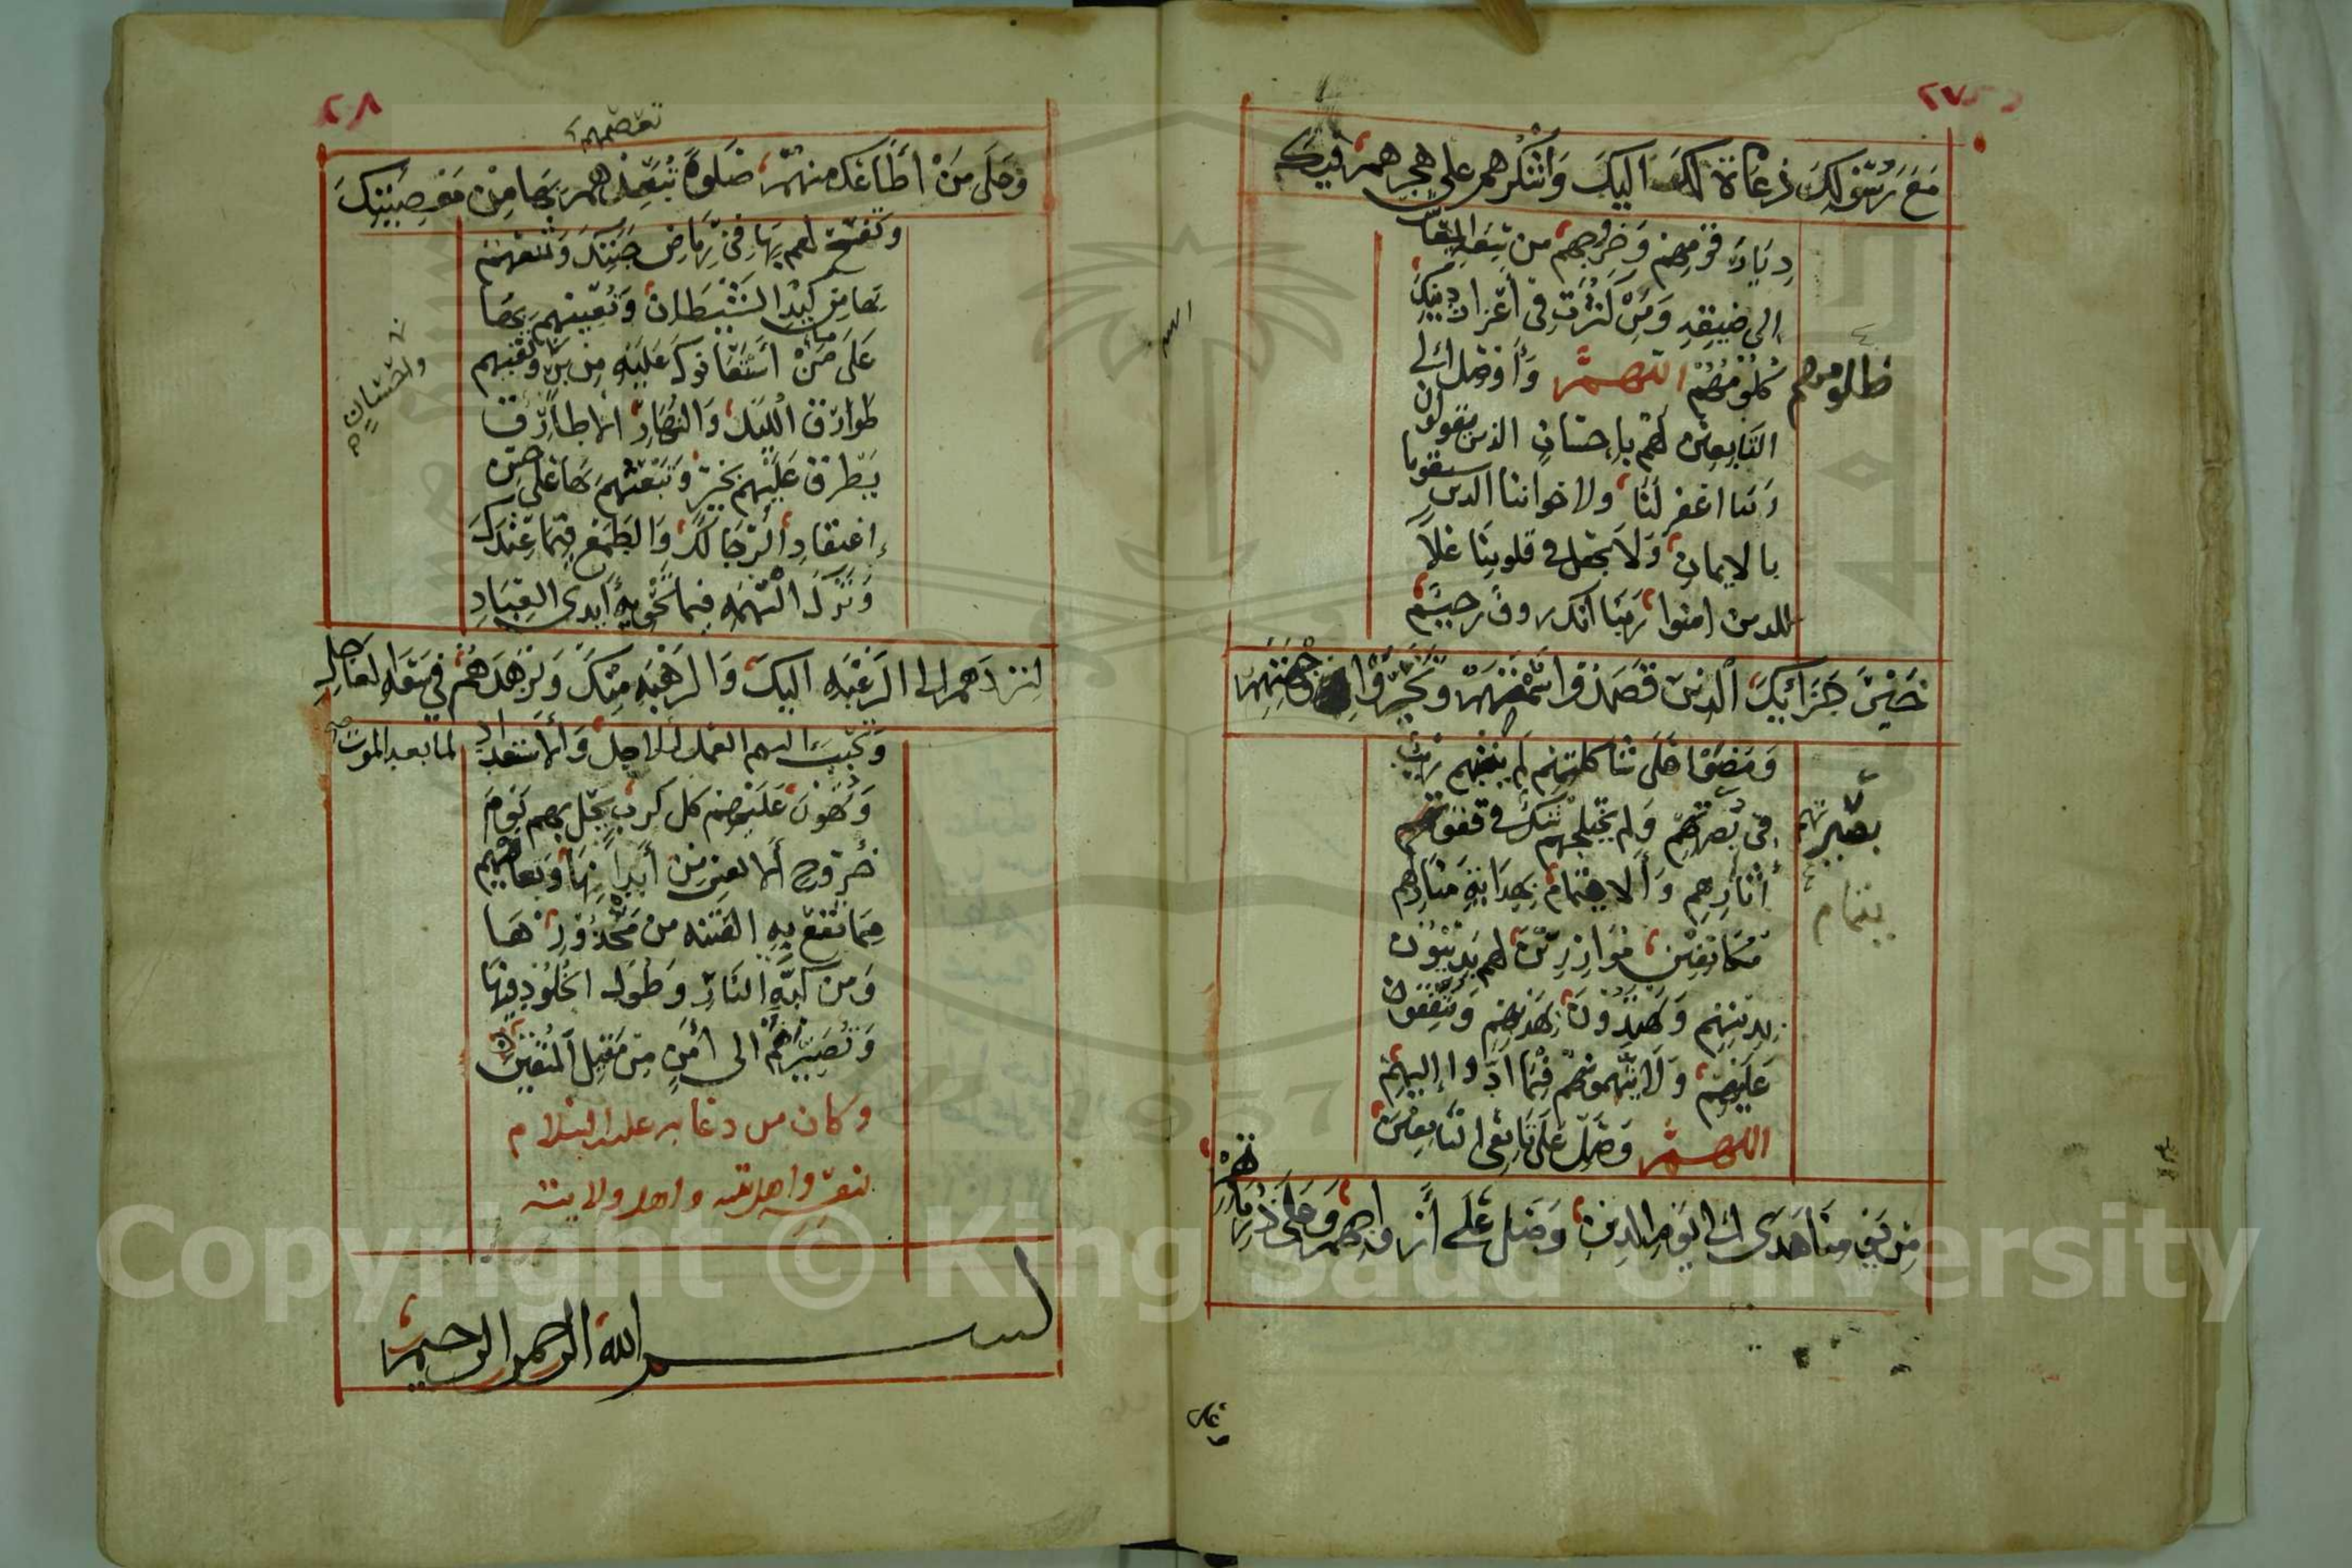 ٢٧
مَعَ رَسُولِكَ دُعَاةً لَكَ اليكَ وَاشْكُرْهم على هجرهم فيك
دِيَارَ قَوْمِهِمْ وَخروجهم من سَعَةِ المعاش
إلى ضيقِهِ وَمَنْ كَثَّرْتَ في اعْزازِ دينِكَ
مِنْ مَظْلُومِهِمْ اللهمَّ وَأَوْصِل الى
ظلومهم
التابعين لَهُمْ بإحسانٍ الذين يقولون
ربنا اغفر لَنَا ولاخواننا الذين سبقونا
بالايمان وَلا تجعل في قلوبِنَا غلاً
للذين امنوا رَبَّنَا انك رءوفٌ رحيمٌ
خَيْرَ جَزَائِكَ الَّذِينَ قَصَدُوا سَمْتَهُمْ وَتَحَرَّوْا وِجْهَتَهُمْ
وَمَضَوْا عَلَى شَاكِلَتِهِمْ لَمْ يَثْنِهِمْ رَيْبٌ
في بَصِيرَتِهِمْ وَلم يَخْتَلِجْهُمْ شَكٌّ في قَفْوِ
بصيرتهم
آثارِهِم وَالايتمام بِهِدَايَةِ مَنَارِهِم
يتمام
مُكَانِفِينَ مُوَازِرِينَ لهم يَدِينُونَ
بِدِينِهِم وَيَهْتَدُونَ بِهَدْيِهِم وَيَتَّفِقُونَ
عَلَيْهِمْ وَلَا يَتَّهِمُونَهُمْ فِيمَا ادَّوا إليهِمْ
اللهمَّ وَصَلِّ عَلَى تَابعي التابعينَ
مِنْ يَوْمِنَا هَذَى الى يَوْمِ الدِين وَصَلِّ عَلَى أَزْوَاجِهِمْ وَعَلَى ذُرِّيَّاتِهِمْ
٢٨
وَعَلَى مَنْ أَطَاعَكَ مِنْهُمْ صَلوةً تَعْصِمُهُمْ بِهَا مِنْ مَعْصِيَتِكَ
تعصمهم
وَتَفْسَحُ لهم بِهَا فِي رِيَاضِ جَنَّتِكَ وَتَمْنَعُهُمْ
بِهَا مِنْ كَيْدِ الشَّيْطَانِ وَتُعِينُهُمْ بِهَا
عَلَى مَا اسْتَعَانُوكَ عَلَيْهِ مِنْ بِرٍّ وَتَقِيهِم
طَوَارِقَ اللَّيْلِ وَالنَّهَارِ الا طَارِقًا
يَطْرُقُ عَلَيْهِم بِخَيْرٍ وَتَبْعَثُهُمْ بِهَا عَلَى حُسْنِ
إعْتِقَادِ الرَّجَا لَكَ وَالطَّمَعِ فِيمَا عِنْدَكَ
وَتَرْكِ التُّهَمَةِ فِيمَا تَحْوِيهِ أَيْدِي العِبَادِ
لِتَرُدَّهم إلى الرَّغْبَةِ اليكَ وَالرَّهْبَةِ مِنْكَ وَتُزَهِّدَهُمْ فِي سَعَةِ العَاجِلِ
وَتُحَبِّبَ اليهم العمل للاجل وَالاستعداد لما بعد الموت
وَتُهَوِّنَ عَلَيْهِمْ كل كربٍ يَحُلُّ بهم يَوْمَ
خُرُوجِ الانفس مِنْ أَبْدَانِهَا وَتُعَافِيهم
مِمَّا تَقَعُ بِهِ الفتنه من مَحْذُورَاتِهَا
وَمن كَبَّةِ النَّارِ وَطُول الخُلُودِ فِيهَا
وَتُصَيِّرَهُمْ الى أَمْنٍ مِنْ مَقِيلِ المتقين
وكان من دعايه عليه السلام
لنفسه واهل بيته واهل ولايته
بسم الله الرحمن الرحيم
Copyright © King Saud University
1957